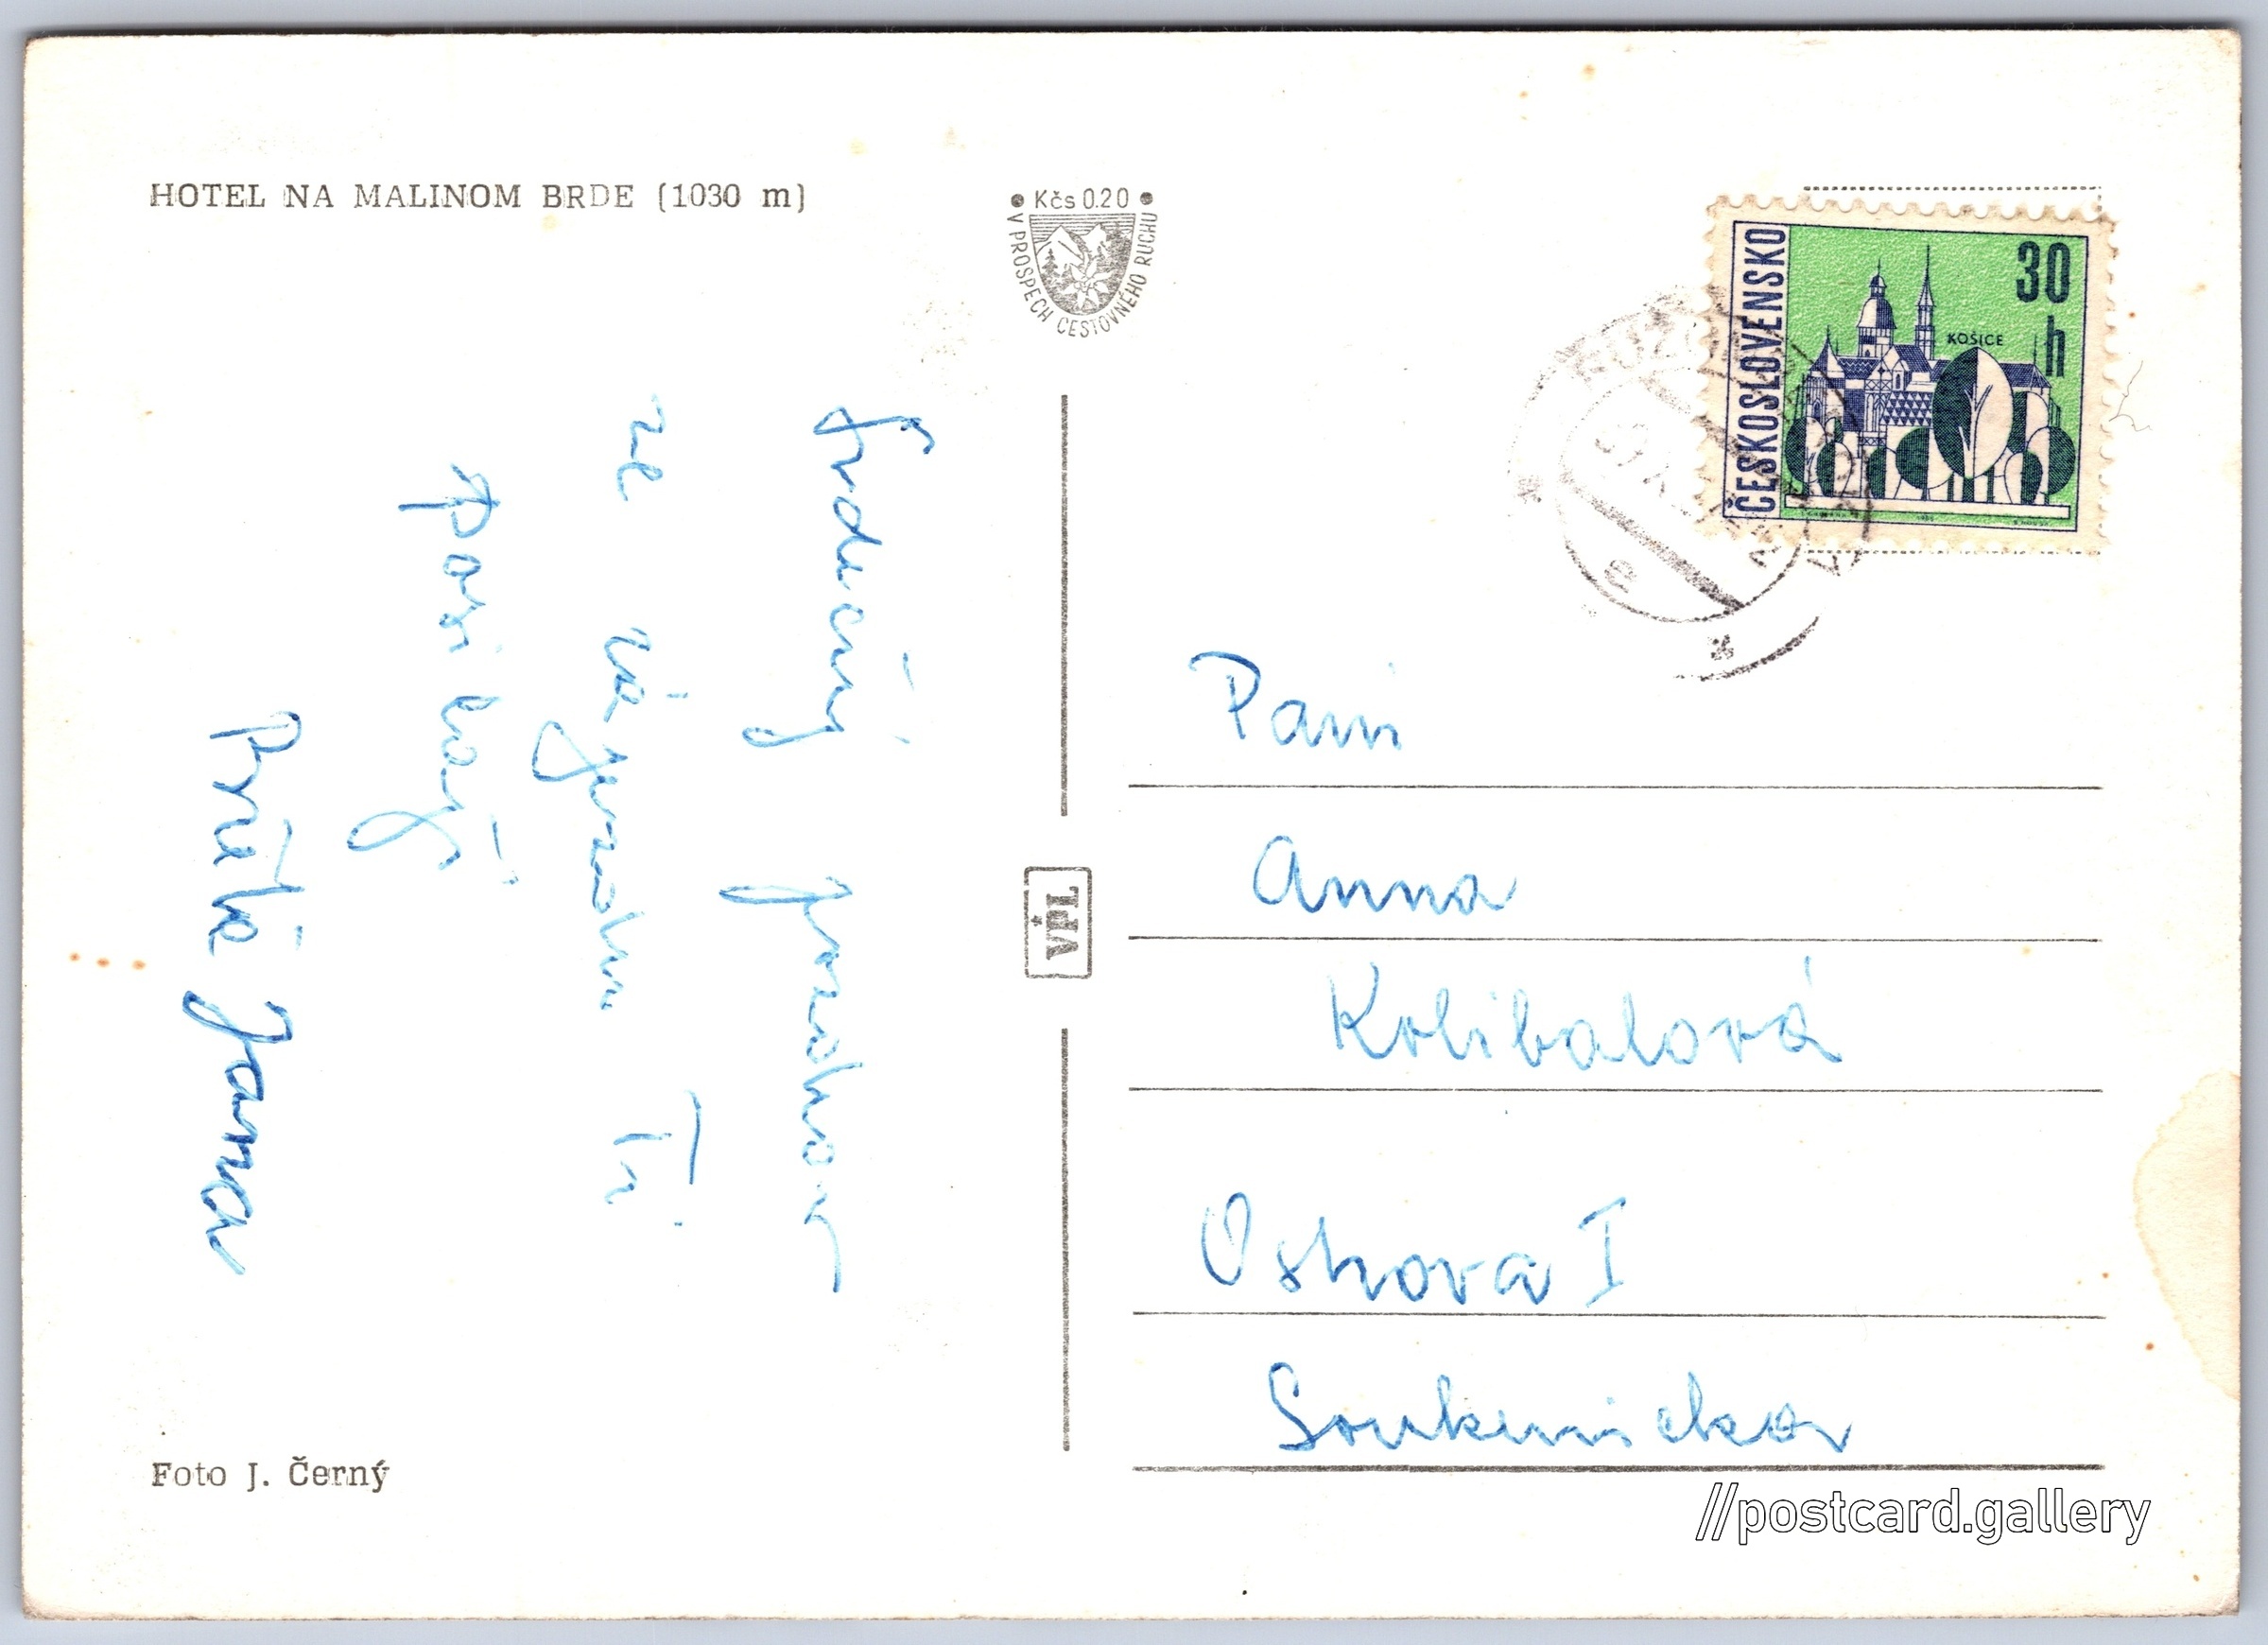 HOTEL NA MALINOM BRDE (1030 m)
• Kčs 0.20 •
V PROSPECH CESTOVNÉHO RUCHU
ČESKOSLOVENSKO
30 h
KOŠICE
Srdečný pozdrav
ze zájezdu Ti
posílají
Jana
VPL
Paní
Anna
Kolibalová
Ostrava I
Soukenická
Foto J. Černý
//postcard.gallery